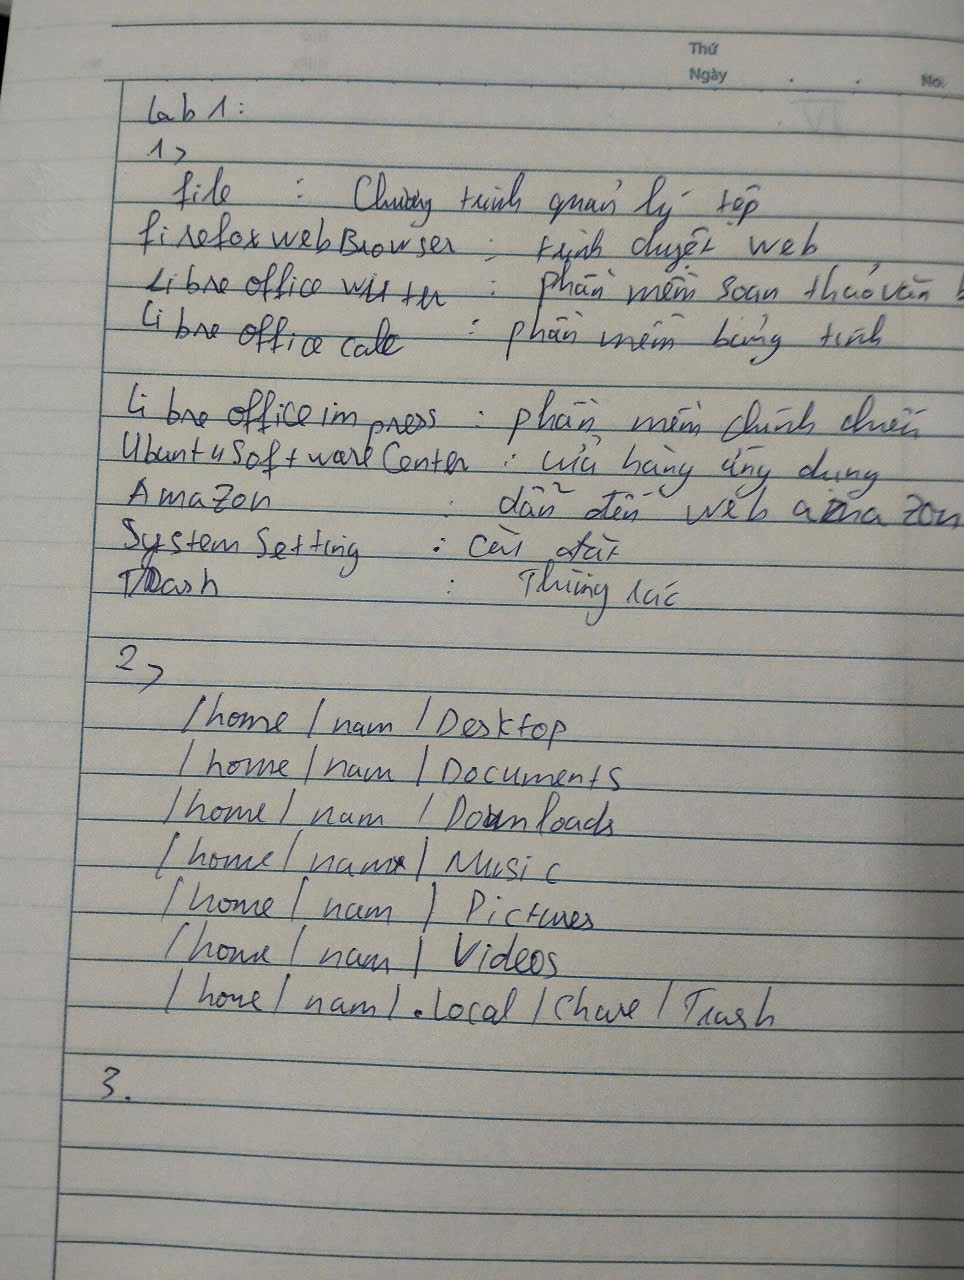 Thứ
Ngày
No.
Lab 1:
1>
file : Chương trình quản lý tệp
firefox web Browser : trình duyệt web
Libre office writer : phần mềm soạn thảo văn
Libre office calc : phần mềm bảng tính
Libre office im press : phần mềm chính chiếu
Ubuntu Software Center : cửa hàng ứng dụng
Amazon : dẫn đến web amazon
System Setting : cài đặt
Trash : Thùng rác
2>
/home/nam/Desktop
/home/nam/Documents
/home/nam/Downloads
/home/nam/Music
/home/nam/Pictures
/home/nam/Videos
/home/nam/.Local/Chare/Trash
3.